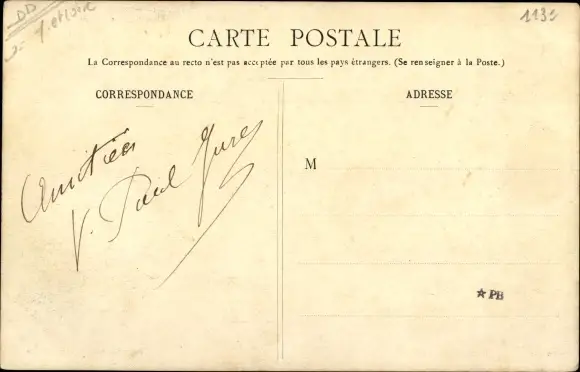 1132
CARTE POSTALE
La Correspondance au recto n'est pas acceptée par tous les pays étrangers. (Se renseigner à la Poste.)
CORRESPONDANCE
ADRESSE
Amitiés
V. Paul
M
★ PB